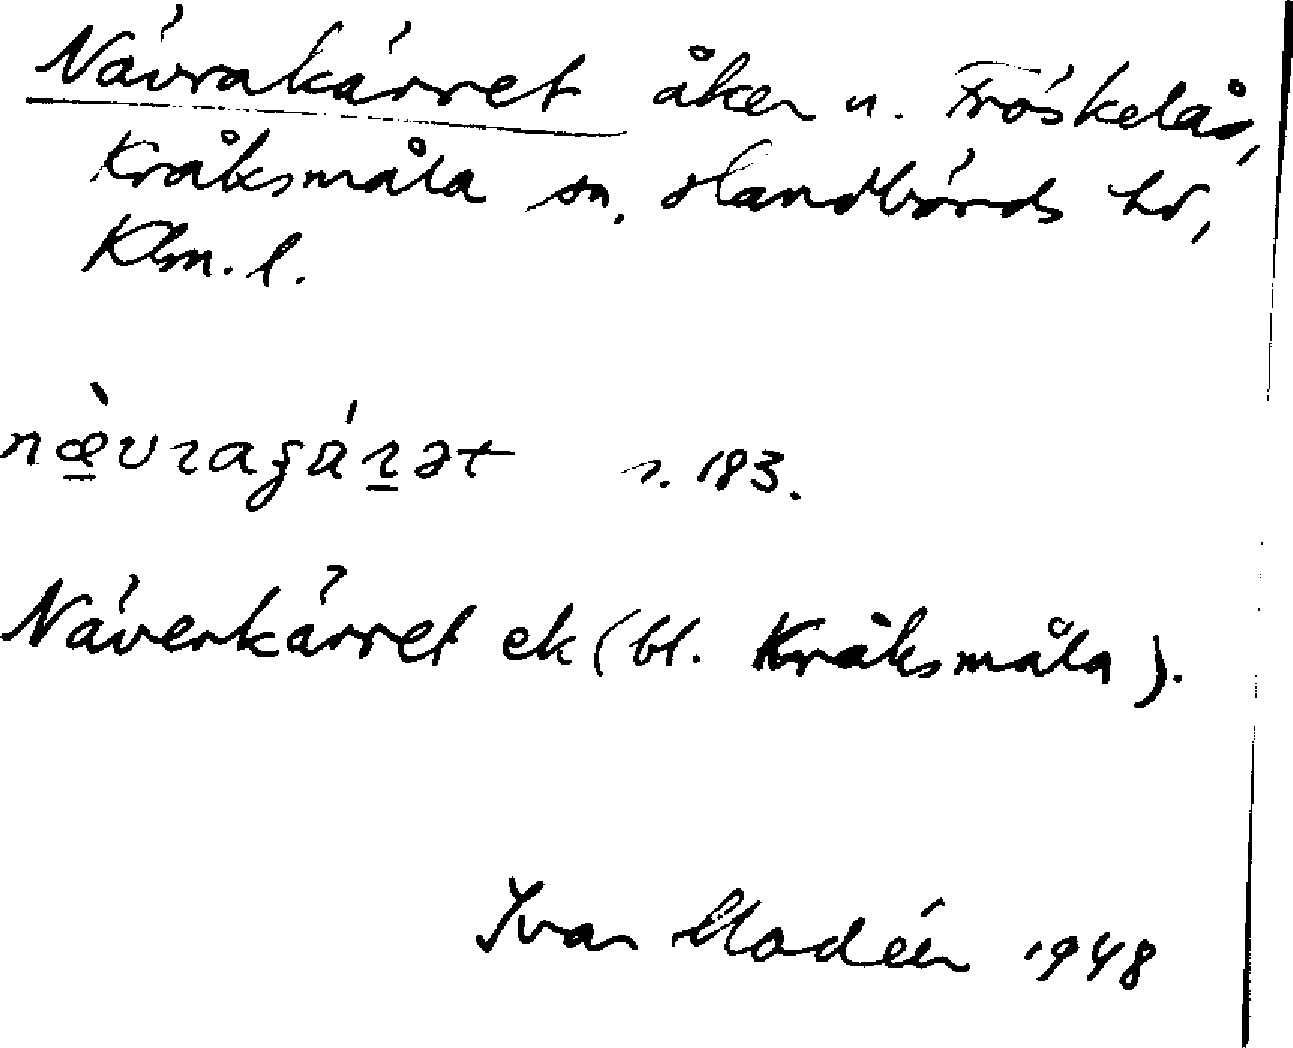 Nävrakärret åker u. Fröskelås,
Kråksmåla sn. Handbörds hd,
Klm. l.
næ̀vragárət s. 183.
Näverkärret ek (bl. Kråksmåla).
Ivar Modéer 1948